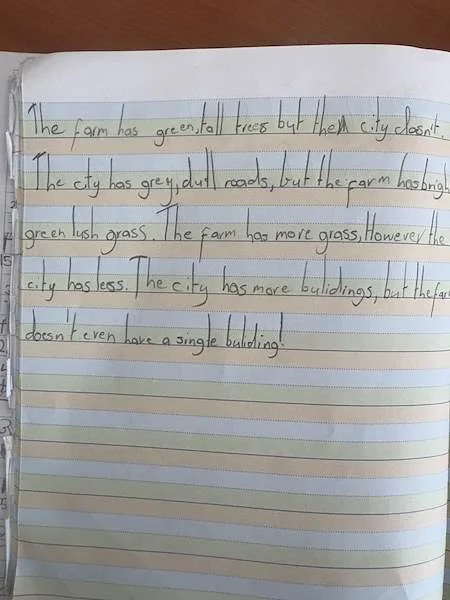 The farm has green, tall trees but the city doesn't.
The city has grey, dull roads, but the farm has brigh
green lush grass. The farm has more grass, However the
city has less. The city has more bulidings, but the far
doesn't even have a single buliding!